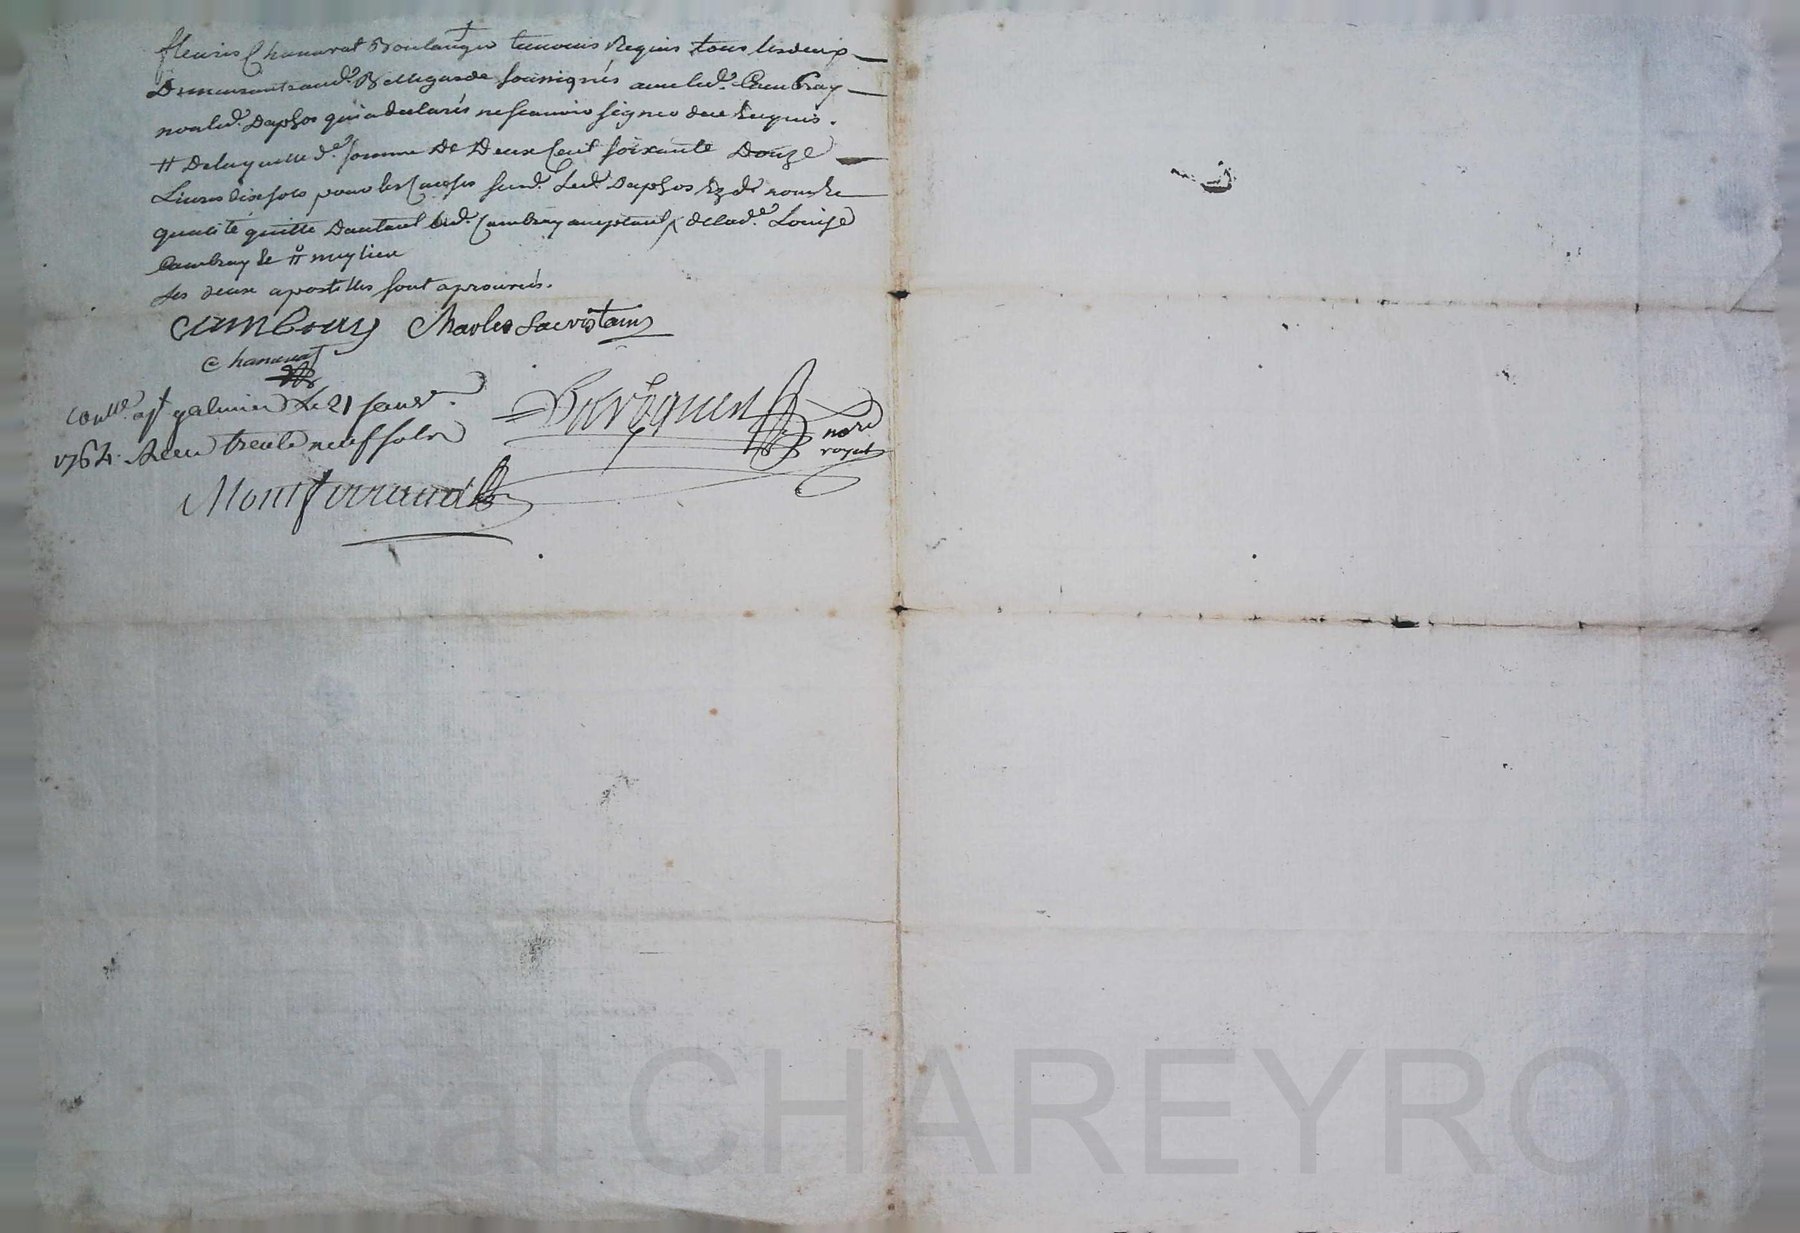 fleuris Chanavat Boulanger temoins Requis tous lesdeux
Demeurant aud. Bellegarde soussignés avec led. Cambray
non led. Daphos qui a declarés ne scavoir signer de ce Requis.
# De laquelle d.e somme De Deux Cent soixante Douze
Livres dix sols pour les Causes susd. Led. Daphos
qualité quitte Dautant led. Cambray acceptant delad.e Louise
Cambray
Les deux apostilles sont aprouvés.
Cambray Charles Sacristain
Chanavat
Conllé. a St galmier Le 21 Janvr.
1764. Reçu trente neuf sols
not re
royal
Montferrand
Pascal CHAREYRON